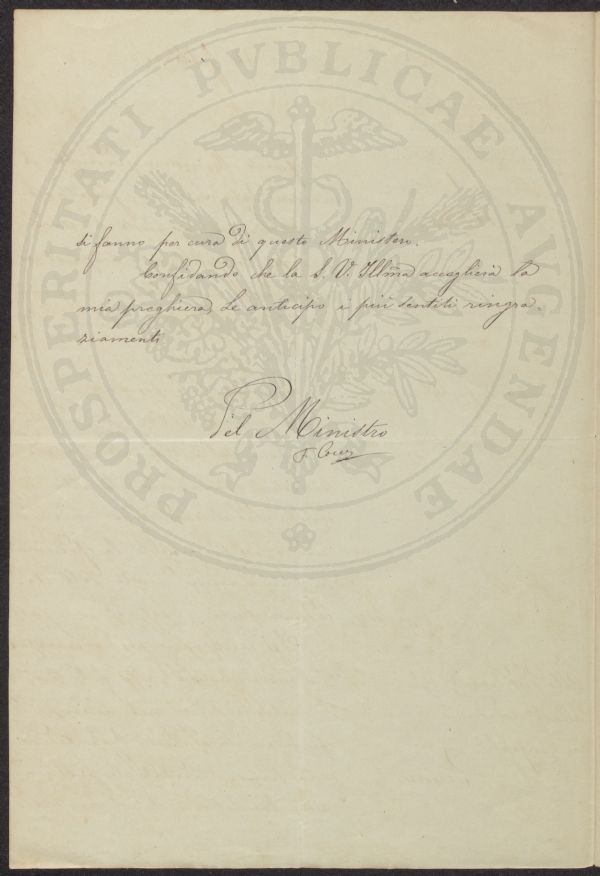 PROSPERITATI PVBLICAE AVGENDAE
si fanno per cura di questo Ministero.
Confidando che la S. V. Illma accoglierà la
mia preghiera, Le anticipo i più sentiti ringra-
ziamenti
Pel Ministro